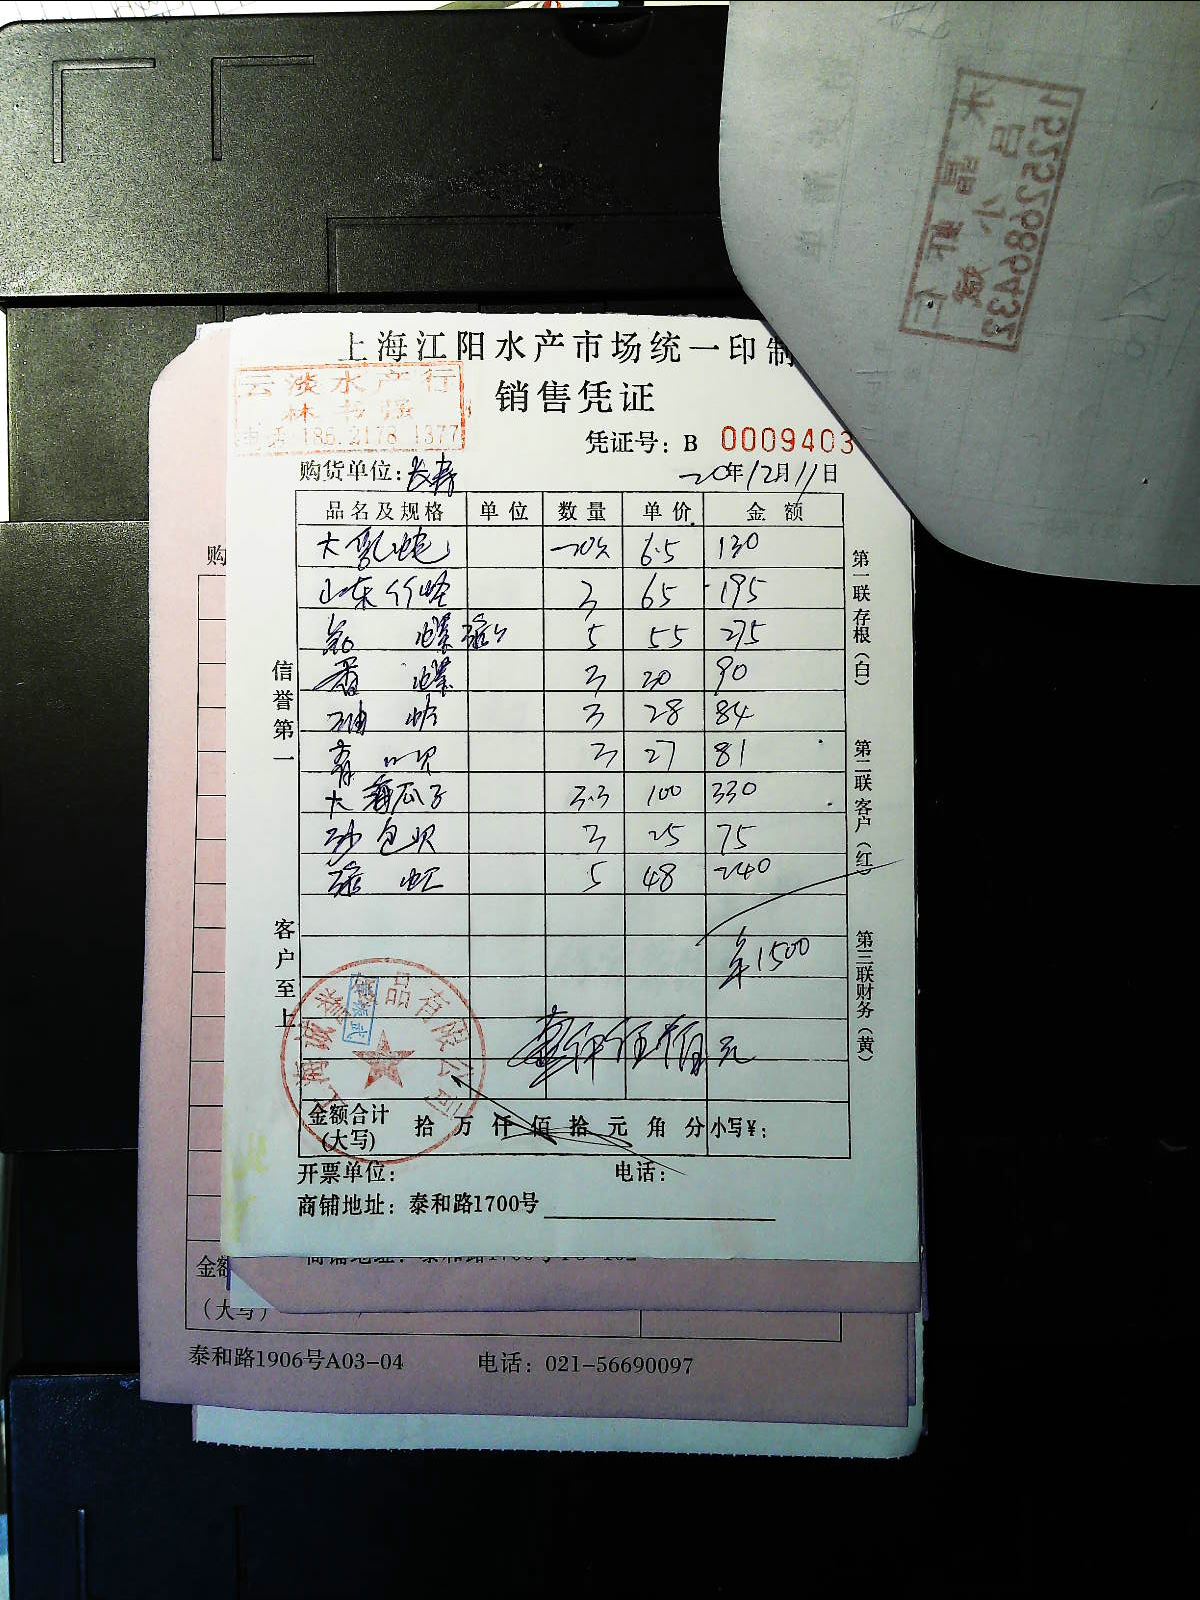 15252686433
上海江阳水产市场统一印制
云淡水产行
销售凭证
电话 186 2178 1377
凭证号：B 0009403
购货单位：长寿 20年12月11日
品名及规格 单位 数量 单价 金额
6.5 130
山东竹蛏 3 65 195
螺 5 55 275
香螺 3 30 90
3 28 84
青口贝 3 27 81
大海瓜子 3.3 100 330
沙包贝 3 25 75
5 48 240
¥1500
壹仟伍佰元
金额合计(大写) 拾 万 仟 佰 拾 元 角 分 小写¥：
开票单位： 电话：
商铺地址：泰和路1700号
信誉第一 客户至上
第一联存根（白） 第二联客户（红） 第三联财务（黄）
品有限公司
购
金额
（大写）
泰和路1906号A03-04 电话：021-56690097